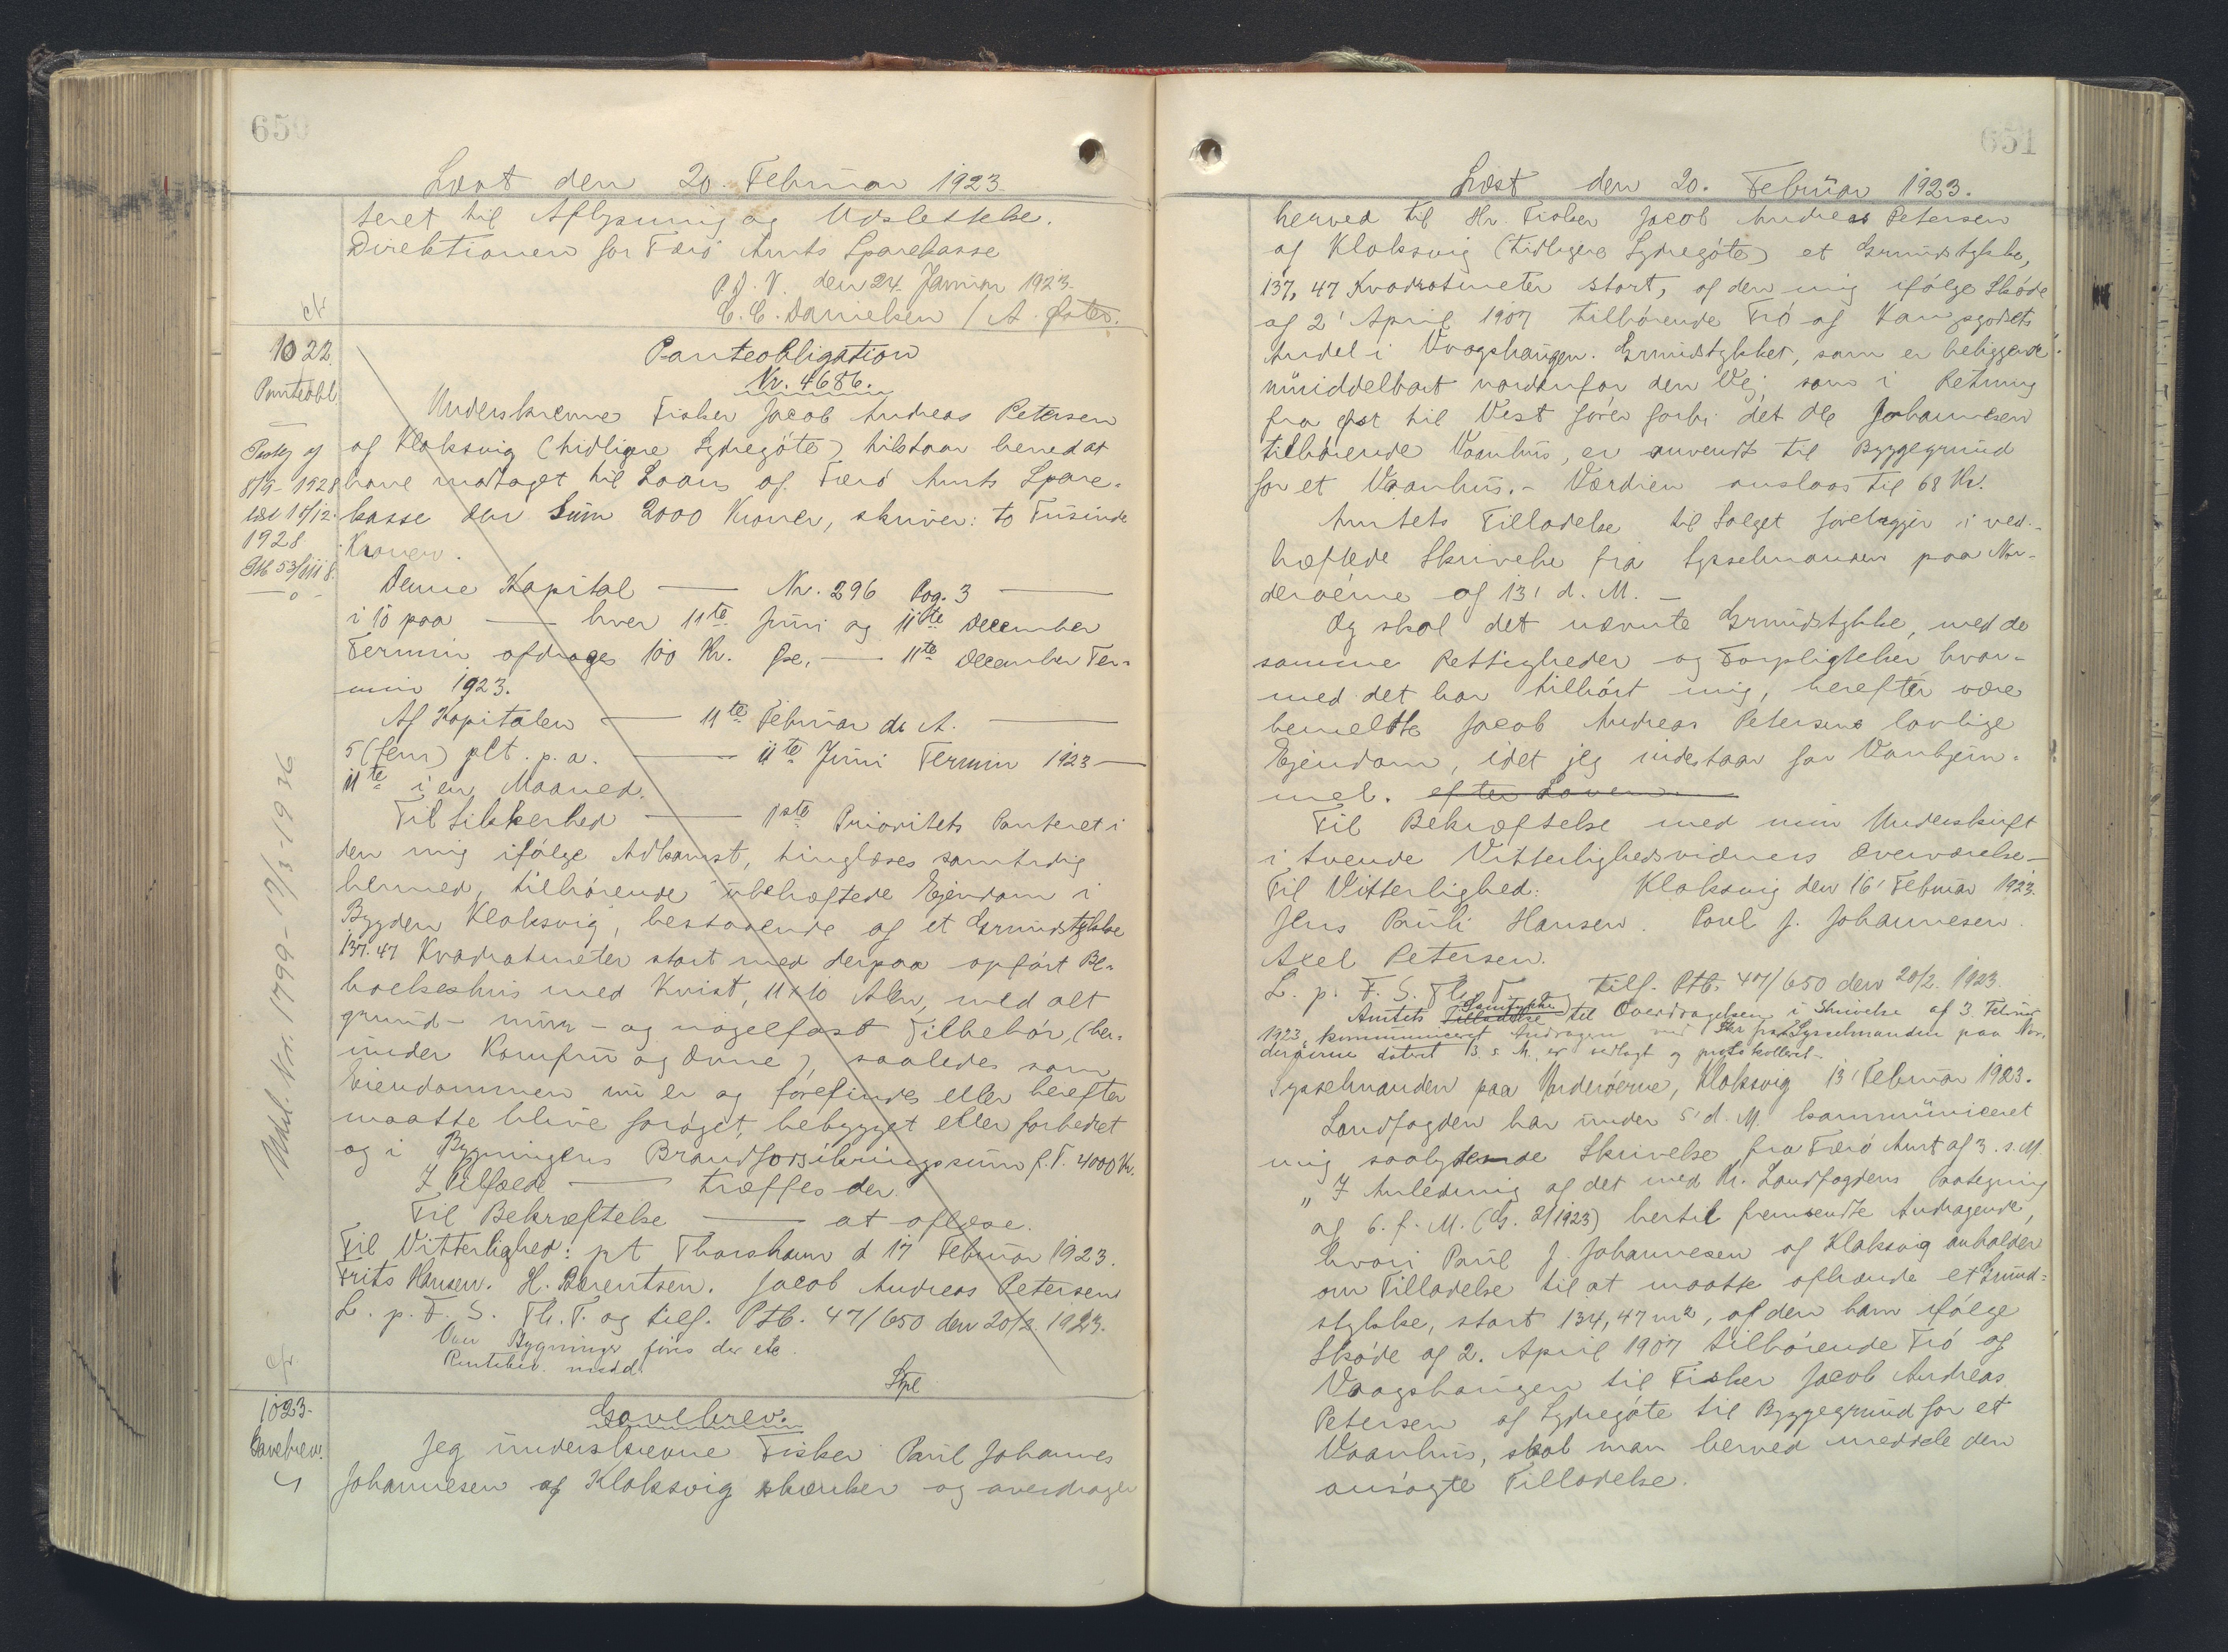 650
Læst den 20. Februar 1923.
teret til Aflysning og Udslettelse.
Direktionen for Færø Amts Sparekasse
P. D. V. den 24. Januar 1923.
C. C. Danielsen / A. Øster.
cfr
1022.
Panteobl.
Pantobligation
Nr. 4686.
Paateg af
8/9-1928
læst 15/12.
1928.
Underskrevne Fisker Jacob Andreas Petersen
af Klaksvig (tidligere Sydregøte) tilstaar herved at
have modtaget til Laans af Færø Amts Spare-
kasse den Sum 2000 Kroner, skriver: to Tusinde
Kroner.
Denne Kapital — Nr. 296 Pag. 3 —
i 10 paa — hver 11te Juni og 11te December
Termin afdrages 100 Kr. — 11te December Ter-
min 1923.
Af Kapitalen — 11te Februar d. A. —
5 (fem) pCt. p. a. — 11te Juni Termin 1923 —
11te i en Maaned.
Til Sikkerhed — 1ste Prioritets Panteret i
den mig ifølge Adkomst, tinglæses samtidig
hermed, tilhørende ubehæftede Ejendom i
Bygden Klaksvig, bestaaende af et Grundstykke
137.47 Kvadratmeter stort med derpaa opført Be-
boelseshus med Kvist, 11 x 10 Alen, med alt
grund- mur- og nagelfast Tilbehør, (her-
under Komfur og Ovne), saaledes som
Eiendommen nu er og forefindes eller herefter
maatte blive forøget, bebygget eller forbedret
og i Bygningens Brandforsikringssum f. T. 4000 Kr.
I Tilfælde — træffes der.
Til Bekræftelse — at aflæse.
Til Vitterlighed: pt Thorshavn d 17 Februar 1923.
Frits Hansen. H. Berentsen. Jacob Andreas Petersen
L. p. F. S. Th. T. og tilf. Ptb. 47/650 den 20/2. 1923.
Om Bygninger føres der etc.
Rentebev. medd.
Udsl. Nr. 1799 - 17/3-1936
cfr
Stpl
1023.
Gavebrev.
Gavebrev.
Jeg underskrevne Fisker Paul Johannes
Johannesen af Klaksvig skænker og overdrager
651
Læst den 20. Februar 1923.
herved til Hr. Fisker Jacob Andreas Petersen
af Klaksvig (tidligere Sydregøte) et Grundstykke,
137,47 Kvadratmeter stort, af den mig ifølge Skøde
af 2' April 1907 tilhørende Trø af Kongsgodets
Andel i Vaagshaugen. Grundstykket, som er beliggende
umiddelbart nordenfor den Vej, som i Retning
fra Øst til Vest fører forbi det Ole Johannesen
tilhørende Vaanhus, er anvendt til Byggegrund
for et Vaanhus. - Værdien anslaas til 68 Kr.
Amtets Tilladelse til Salget foreligger i ved-
hæftede Skrivelse fra Sysselmanden paa Nor-
derøerne af 13' d. M. —
Og skal det nævnte Grundstykke, med de
samme Rettigheder og Forpligtelser hvor-
med det har tilhørt mig, herefter være
bemeldte Jacob Andreas Petersens lovlige
Ejendom, idet jeg indestaar for Vanhjem-
mel. efter Loven.
Til Bekræftelse med min Underskrift
i tvende Vitterlighedsvidners Overværelse -
Til Vitterlighed: Klaksvig den 16' Februar 1923.
Jens Pauli Hansen. Poul J. Johannesen.
Axel Petersen.
L. p. F. S. Th. T. og tilf. Ptb. 47/650 den 20/2. 1923.
Amtets Tilladelse Samtykke til Overdragelsen i Skrivelse af 3. Februar
1923, kommuniceret Andrageren ved Skr fra Sysselmanden paa Nor-
derøerne dateret 13. s. M. er vedlagt og protokolleret -
Sysselmanden paa Norderøerne, Klaksvig 13' Februar 1923.
Landfogden har under 5' d. M. kommuniceret
mig saalydende Skrivelse fra Færø Amt af 3. s. M.
"I Anledning af det med Hr. Landfogdens Paategning
af 6. f. M. (G. 2/1923) hertil fremsendte Andragende,
hvori Paul J. Johannesen af Klaksvig anholder
om Tilladelse til at maatte afhænde et Grund-
stykke, stort 134,47 m², af den ham ifølge
Skøde af 2. April 1907 tilhørende Trø af
Vaagshaugen til Fisker Jacob Andreas
Petersen af Sydregøte til Byggegrund for et
Vaanhus, skal man herved meddele den
ansøgte Tilladelse.